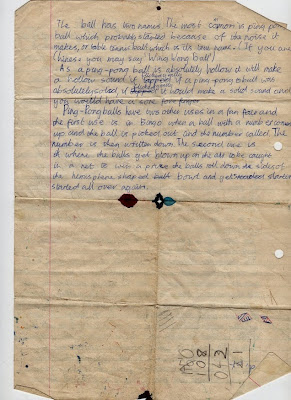 The ball has two names. The most comon is ping pong
ball which probably started because of the noise it
makes, or table tennis ball which is its true name. (If you are
Chinese you may say Wing Wong Ball)
As a ping-pong ball is absolutely hollow it will make
a hollow sound if tapped. If a ping-pong ball was
absolutely solid, it would make a solid sound and
you would have a sore finger.
Ping-Pong balls have two other uses in a fun
the first use is in Bingo when a ball with a number comes
up and the ball is picked out and the number called. The
number is then written down. The second one is
where the balls get blown up in the air to be caught
in a net to win a prize the balls roll down the sides of
the hemisphere shaped bowl and get
started all over again.